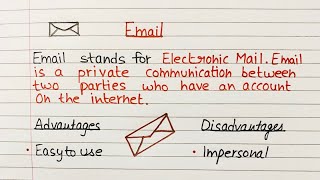 Email
Email stands for Electronic Mail. Email
is a private communication between
two parties who have an account
On the internet.
Advantages Disadvantages
• Easy to use • Impersonal